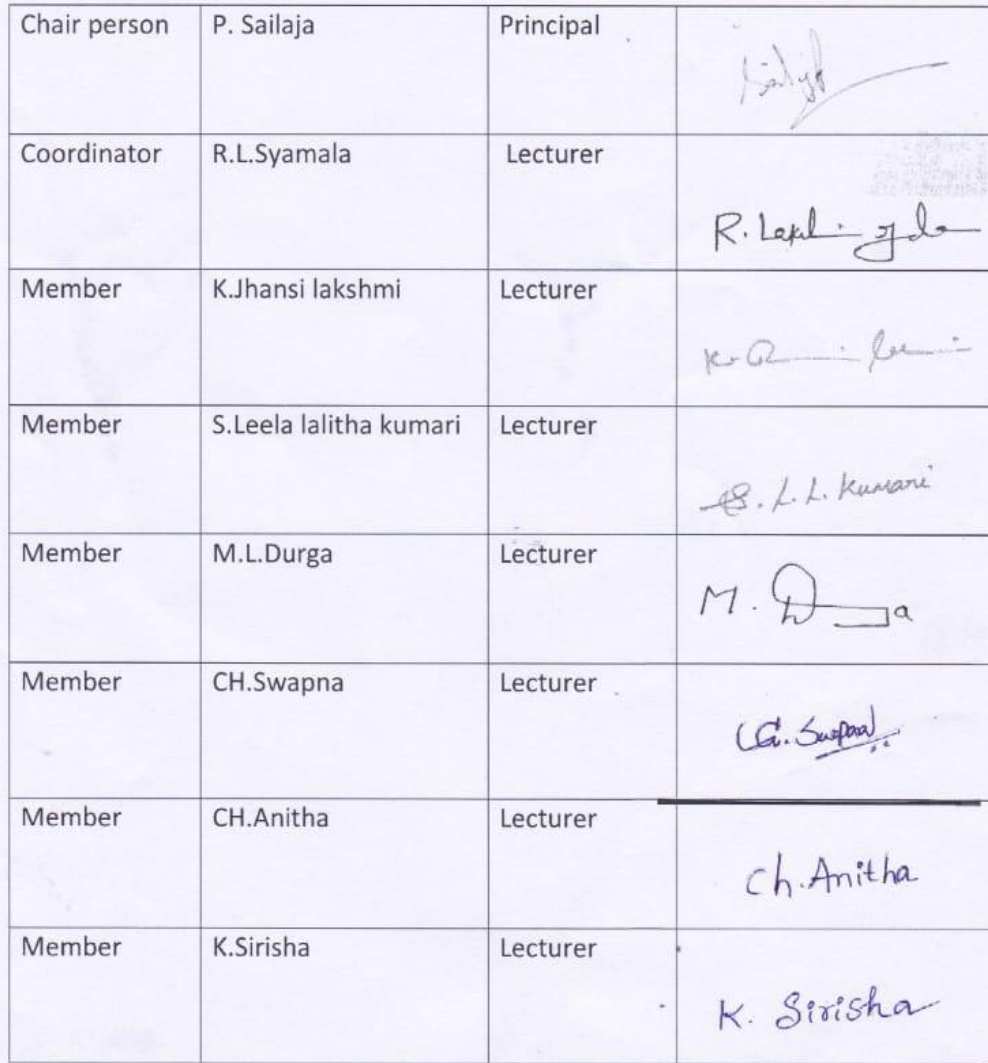 Chair person P. Sailaja Principal
Coordinator R.L.Syamala Lecturer
R.
Member K.Jhansi lakshmi Lecturer
Member S.Leela lalitha kumari Lecturer
S. L. L. Kumari
Member M.L.Durga Lecturer
M. Durga
Member CH.Swapna Lecturer
Member CH.Anitha Lecturer
Ch.Anitha
Member K.Sirisha Lecturer
K. Sirisha